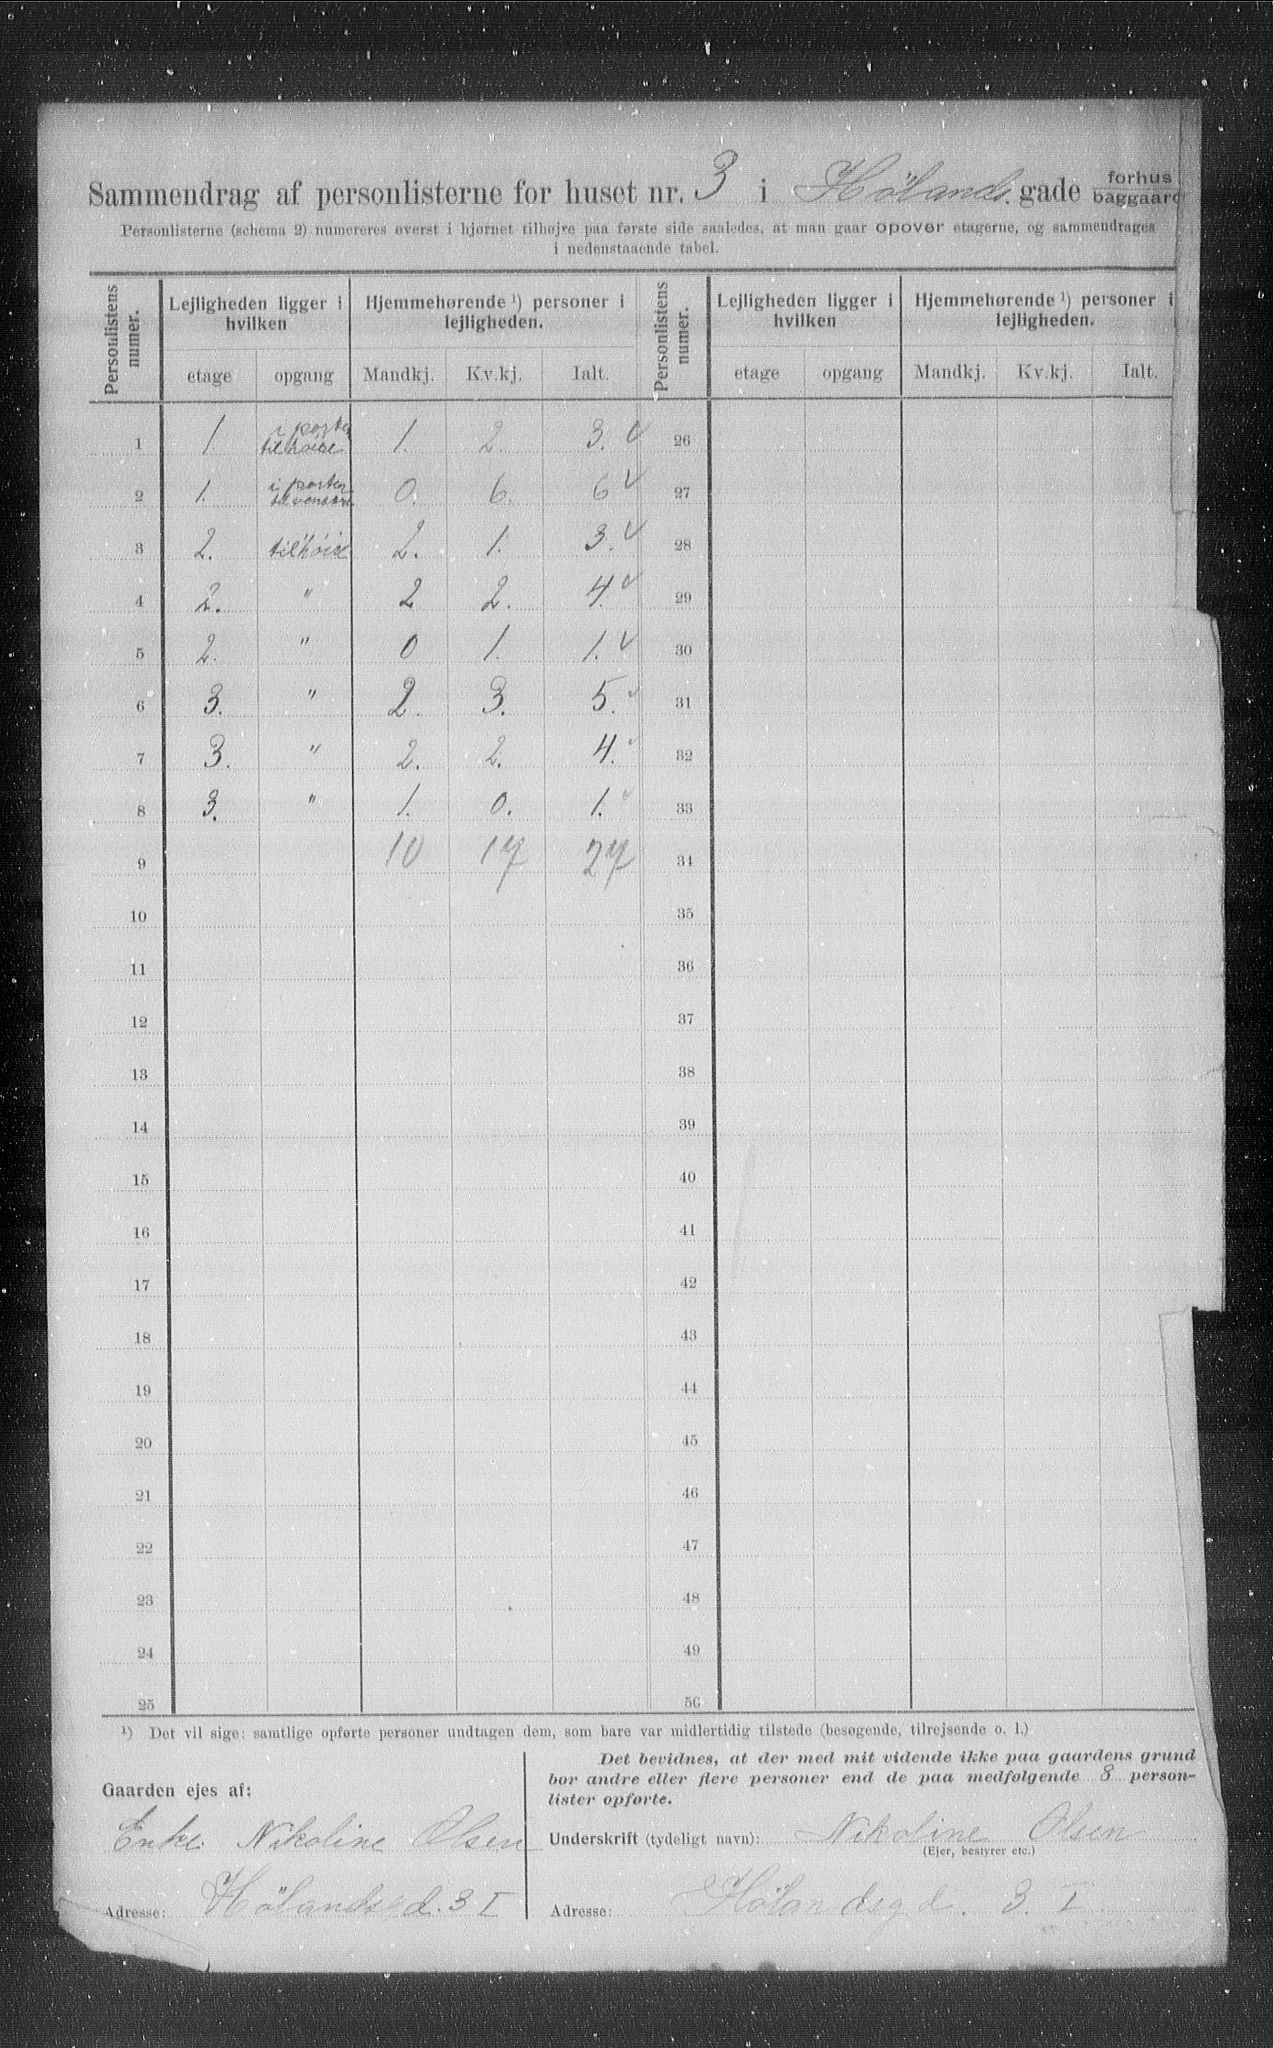 Sammendrag af personlisterne for huset nr. 3 i Hölands. gade forhus baggaard
Personlisterne (schema 2) numereres øverst i hjørnet tilhøjre paa første side saaledes, at man gaar opover etagerne, og sammendrages
i nedenstaaende tabel.
Personlistens numer. Lejligheden ligger i hvilken Hjemmehørende ¹) personer i lejligheden. Personlistens numer. Lejligheden ligger i hvilken Hjemmehørende ¹) personer i lejligheden.
etage opgang Mandkj. Kv.kj. Ialt. etage opgang Mandkj. Kv.kj. Ialt.
1 1. i porten tilhöire 1. 2. 3. 26
2 1. i porten tilvenstre 0. 6. 6 27
3 2. tilhöire 2. 1. 3. 28
4 2. " 2 2. 4. 29
5 2. " 0 1. 1. 30
6 3. " 2. 3. 5. 31
7 3. " 2. 2. 4. 32
8 3. " 1. 0. 1. 33
9 10 17 27 34
10 35
11 36
12 37
13 38
14 39
15 40
16 41
17 42
18 43
19 44
20 45
21 46
22 47
23 48
24 49
25 50
¹) Det vil sige: samtlige opførte personer undtagen dem, som bare var midlertidig tilstede (besøgende, tilrejsende o. l.)
Gaarden ejes af:
Enke Nikoline Olsen
Adresse: Hölandsgd. 3 I
Det bevidnes, at der med mit vidende ikke paa gaardens grund
bor andre eller flere personer end de paa medfølgende 8 person-
lister opførte.
Underskrift (tydeligt navn): Nikoline Olsen
(Ejer, bestyrer etc.)
Adresse: Hölandsgd. 3. I.